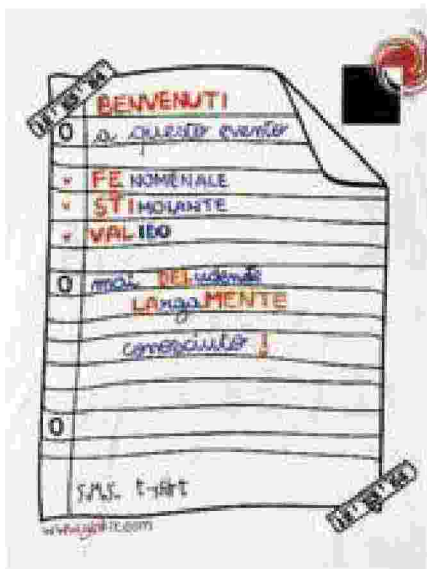 BENVENUTI
a questo evento
FENOMENALE
STIMOLANTE
VALIDO
mai DELudente
LArgaMENTE
conosciuto !
S.M.S. t-art